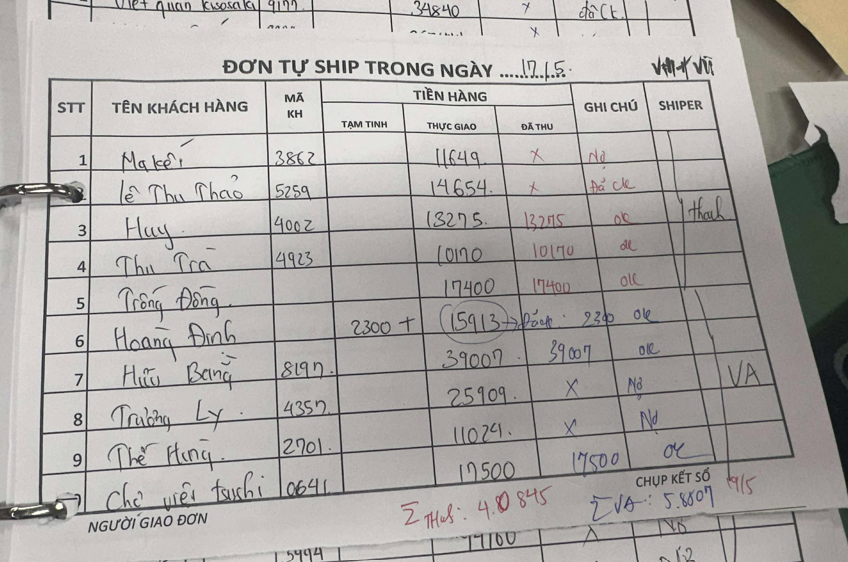 Việt quán kwosaki 9177 34840 x đã ck
x
ĐƠN TỰ SHIP TRONG NGÀY ......17/5.
STT TÊN KHÁCH HÀNG MÃ KH TIỀN HÀNG GHI CHÚ SHIPER
TẠM TINH THỰC GIAO ĐÃ THU
1 Makéi 3862 11649. x Nợ
lê Thu Thảo 5259 14654. x Đã ck
3 Huy 4002 13275. 13275 ok thanh
4 Thu Trà 4923 10170 10170 ok
5 Trống Đồng 17400 17400 ok
6 Hoàng Đinh 2300 + 15913 → Đã ck: 2300 ok
7 Hữu Bằng 8197. 39007. 39007 ok VA
8 Trường Ly. 4357. 25909. x Nợ
9 Thế Hưng. 2701. 11024. x Nợ
Chờ việt tsushi 0641 17500 17500 ok
NGƯỜI GIAO ĐƠN CHỤP KẾT SỐ
Σ VA: 5.6507 19/5
5994 x Nợ